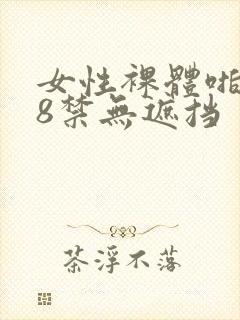 女性裸體啪
8禁無遮挡
茶浮不落